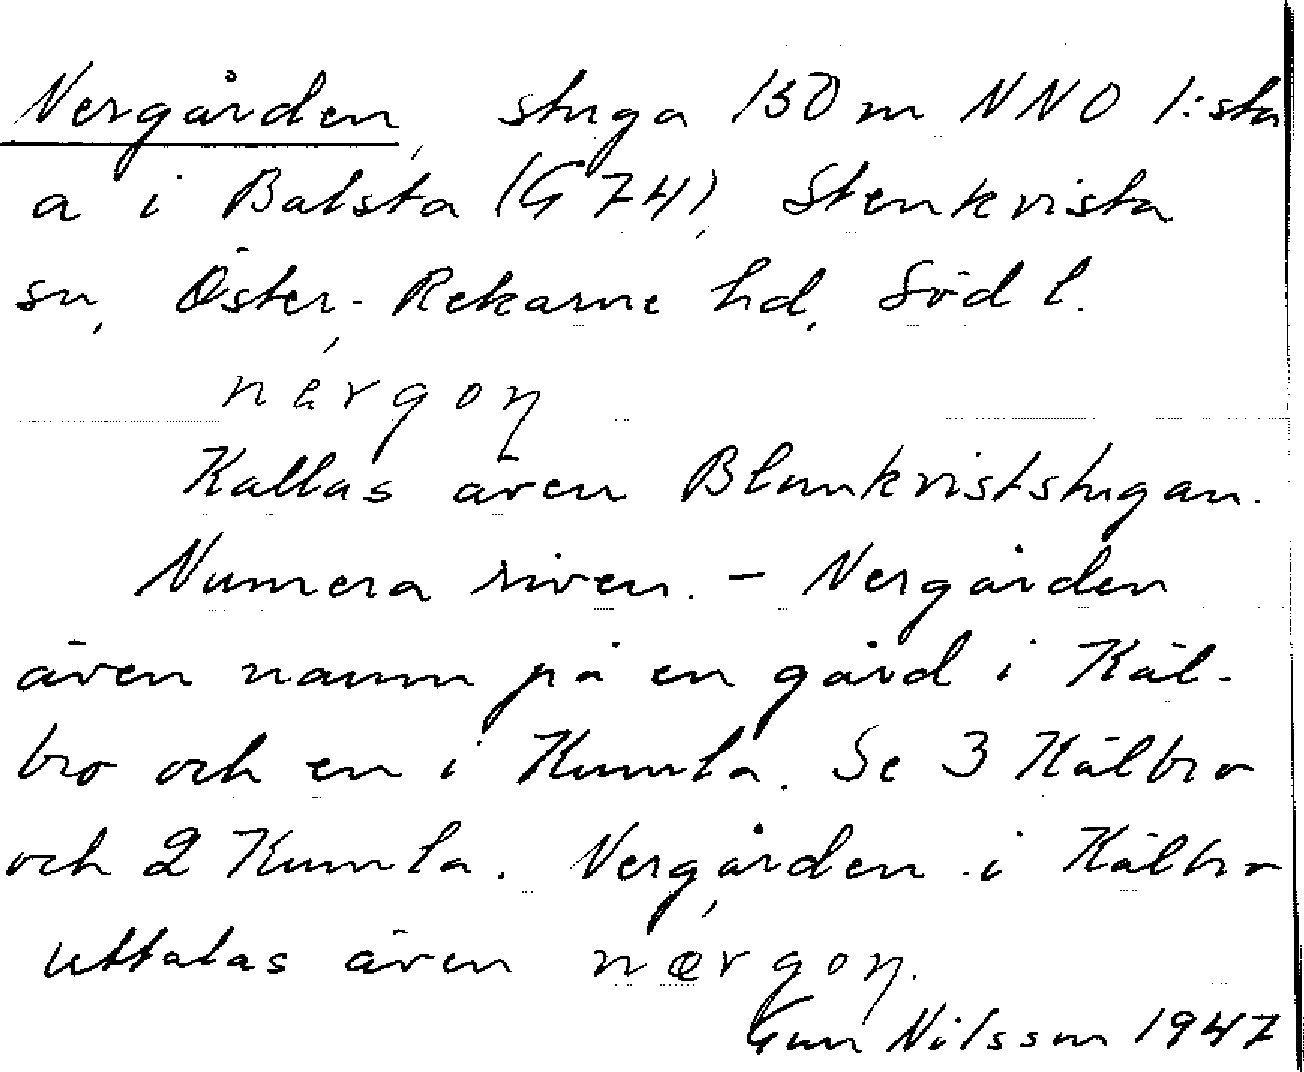 Nergården, stuga 150 m NNO 1:sta
a i Balsta (G 74), Stenkvista
sn, Öster-Rekarne hd, Södl.
nérgoņ
Kallas även Blomkviststugan.
Numera riven. – Nergården
även namn på en gård i Käl-
bro och en i Kumla. Se 3 Kälbro
och 2 Kumla. Nergården i Kälbro
uttalas även nǽrgoņ.
Gun Nilsson 1947